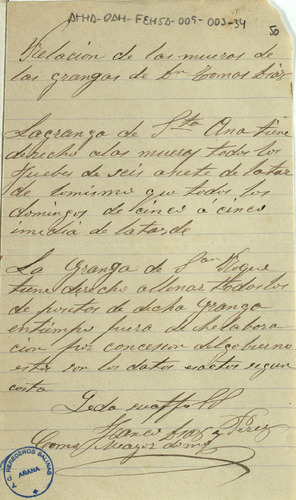 AHHA-DAH-FEHSA-009-002-34
50
Relacion de las mueras de
las grangas de Dn Tomas Diaz
Lagranga de Sta Ana tiene
derecho alas mueras todos los
Juebes de seis asiete de latar
de lomismo que todos los
domingos de cinco á cinco
imedia de latarde
La Granga de San Roque
tiene derecho allenar todos los
de positos de dicha Granga
entiempo fuera de helabora
cion por concesion del govierno
estos son los datos esactos segun
costa
Franco Diaz y Perez
Como Mayor domo
A.C. HEREDEROS SALINAS
AÑANA